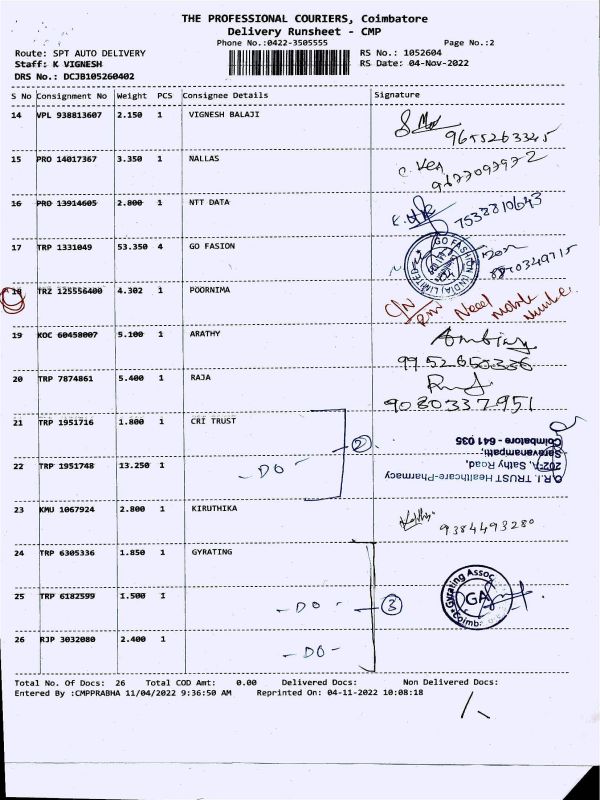 THE PROFESSIONAL COURIERS, Coimbatore
Delivery Runsheet - CMP
Phone No.:0422-3505555 Page No.:2
Route: SPT AUTO DELIVERY RS No.: 1052604
Staff: K VIGNESH RS Date: 04-Nov-2022
DRS No.: DCJB105260402
S No Consignment No Weight PCS Consignee Details Signature
14 VPL 938813607 2.150 1 VIGNESH BALAJI
9655263345
15 PRO 14017367 3.350 1 NALLAS
16 PRO 13914605 2.800 1 NTT DATA
7533810643
17 TRP 1331049 53.350 4 GO FASION
GO FASHION (INDIA) LIMITED
18 TRZ 125556400 4.302 1 POORNIMA
Need Mobile Number.
19 KOC 60458007 5.100 1 ARATHY
9952650336
20 TRP 7874861 5.400 1 RAJA
9080337951
21 TRP 1951716 1.800 1 CRI TRUST
2
22 TRP 1951748 13.250 1 - DO -
C.R.I. TRUST Healthcare-Pharmacy
202-A, Sathy Road,
Saravanampatti,
Coimbatore - 641 035
23 KMU 1067924 2.800 1 KIRUTHIKA
9384493280
24 TRP 6305336 1.850 1 GYRATING
25 TRP 6182599 1.500 1 - DO - 3
Gyrating Assoc
GA
26 RJP 3032080 2.400 1 - DO -
Total No. Of Docs: 26 Total COD Amt: 0.00 Delivered Docs: Non Delivered Docs:
Entered By :CMPPRABHA 11/04/2022 9:36:50 AM Reprinted On: 04-11-2022 10:08:18